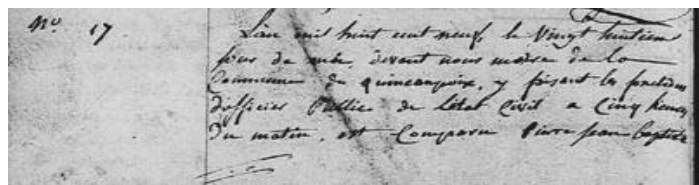 No 17
L'an mil huit cent neuf, le vingt huitieme
jour de mai, devant nous maire de la
Commune de quincampoix, y faisant les fonctions
d'officier Public de l'état Civil a Cinq heures
Du matin, est Comparu Pierre jean baptiste